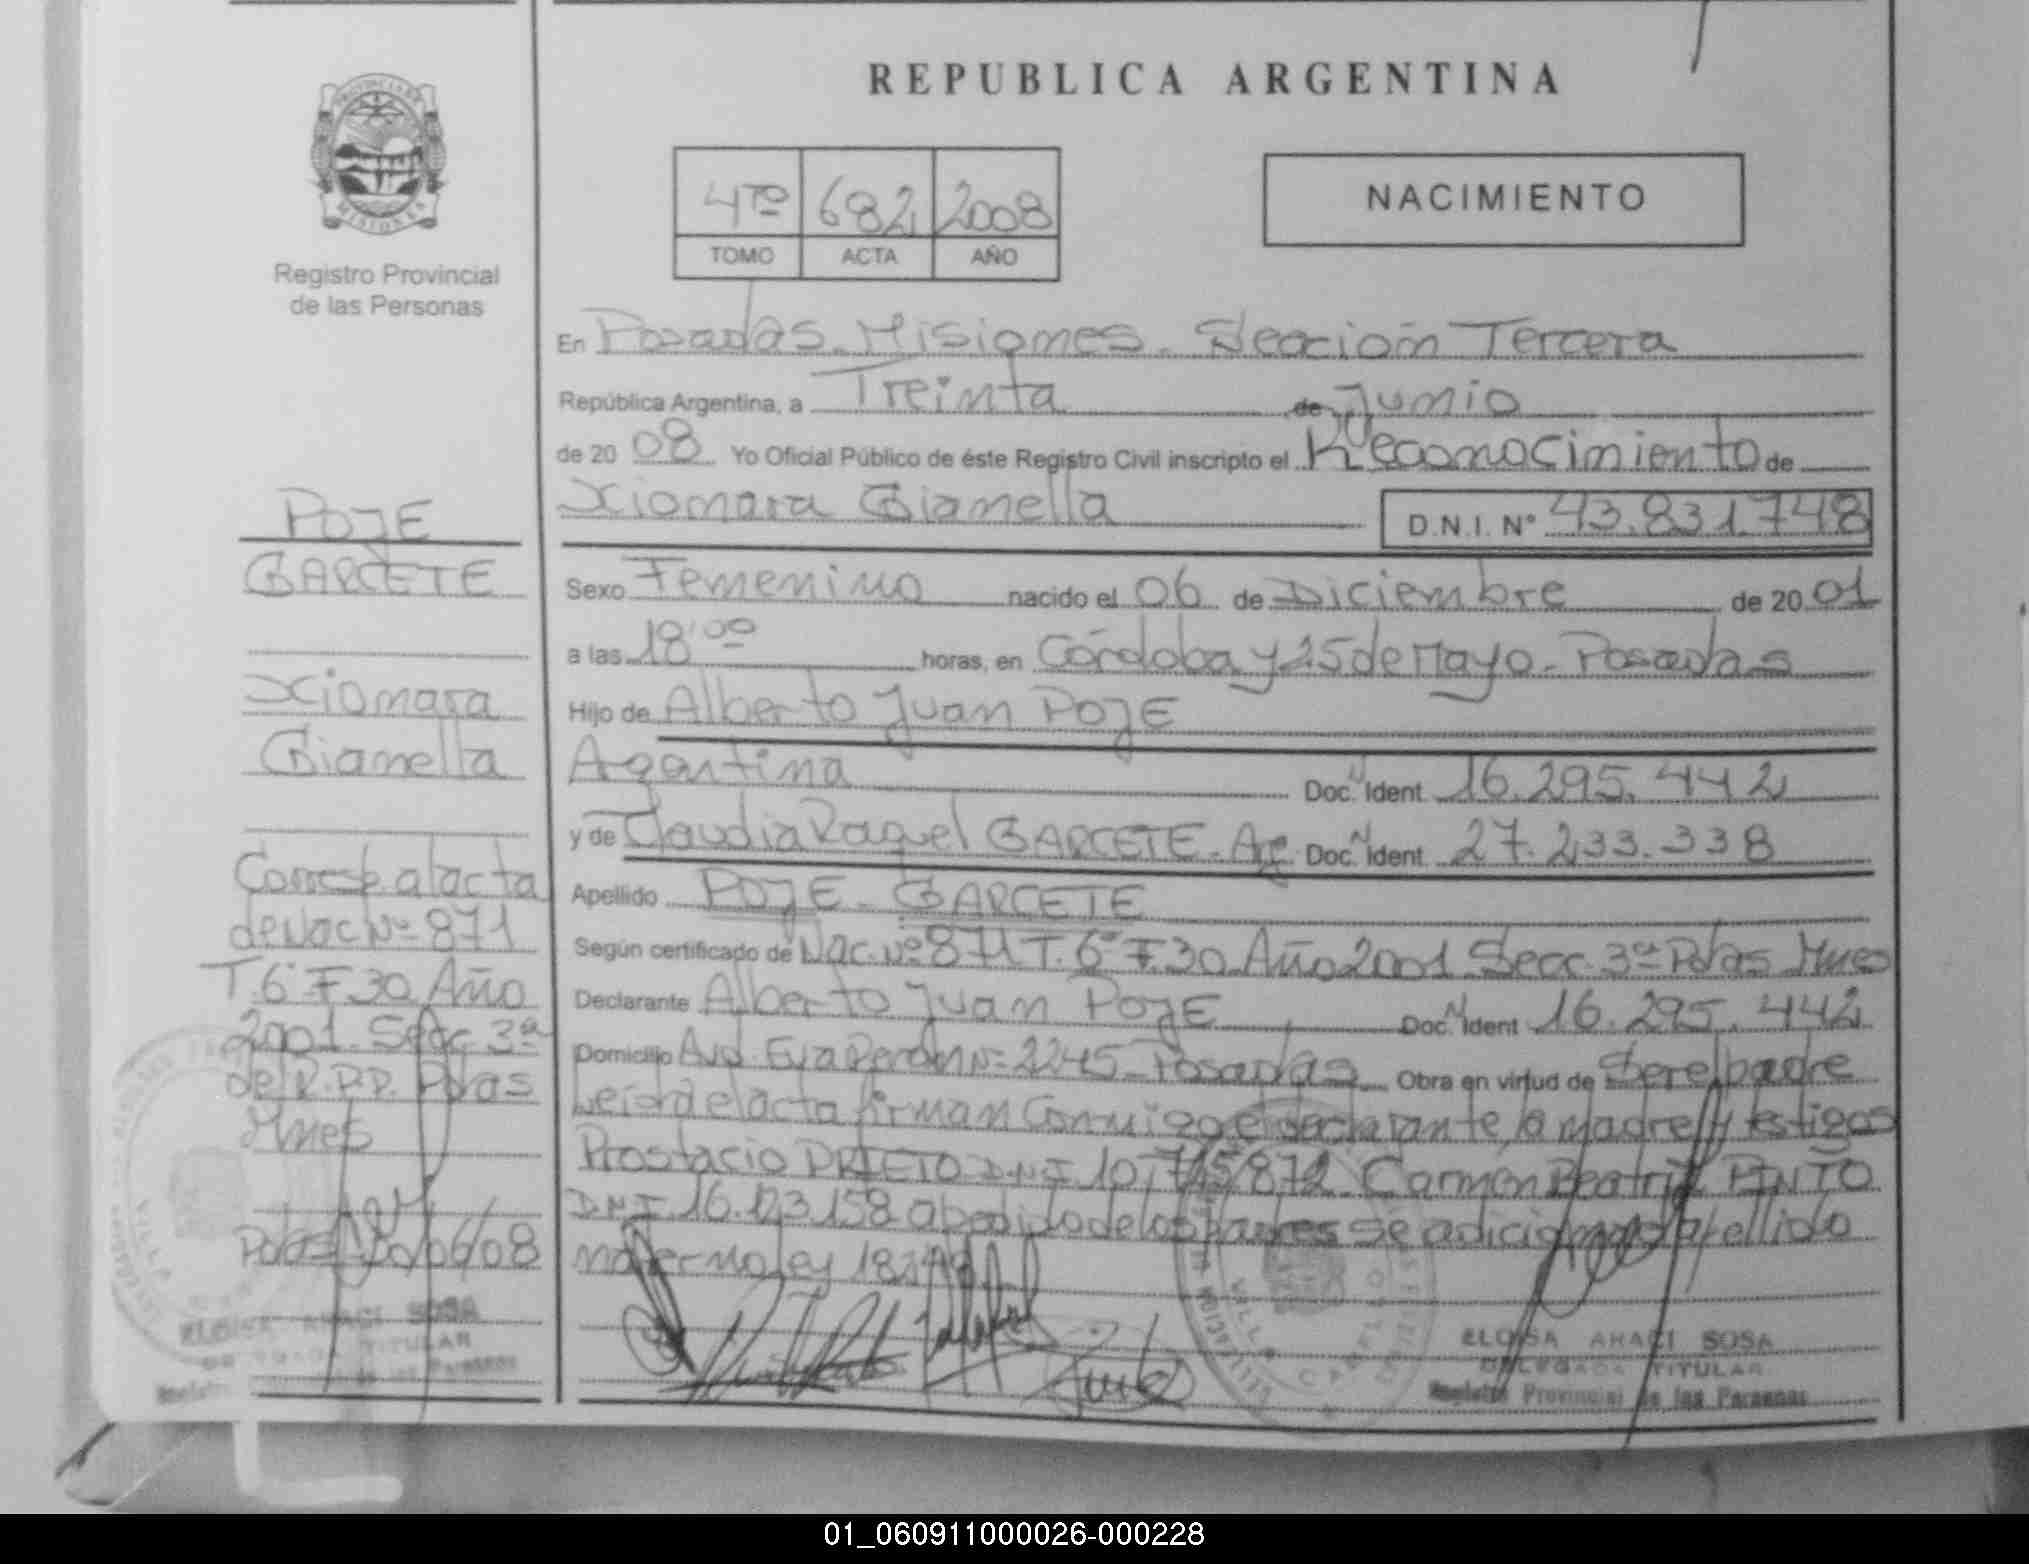 REPUBLICA ARGENTINA
PROVINCIA DE
MISIONES
Registro Provincial
de las Personas
4TO 682 2008
TOMO ACTA AÑO
NACIMIENTO
En Posadas. Misiones. Sección Tercera
República Argentina, a Treinta de Junio
de 20 08 Yo Oficial Público de éste Registro Civil inscripto el Reconocimiento de
Xiomara Gianella D.N.I. Nº 43.831.748
Sexo Femenino nacido el 06 de Diciembre de 20 01
a las 18'00 horas, en Córdoba y 25 de Mayo - Posadas
Hijo de Alberto Juan POJE
Argentina Doc. Ident. 16.295.442
y de Claudia Raquel GARCETE - Arg. Doc. Ident. 27.233.338
Apellido POJE - GARCETE
Según certificado de Nac. Nº 871 T. 6º F.30 Año 2001 Secc. 3ª Pdas Mnes
Declarante Alberto Juan POJE Doc. Ident. 16.295.442
Domicilio Avd. Eva Perón Nº 2245 - Posadas Obra en virtud de Ser el padre
Leída el acta firman Conmigo el declarante, la madre y testigos
Prostacio PRIETO D.N.I. 10.715.872 Carmen Beatriz PINTO
D.N.I. 16.123.158 a pedido de los padres se adiciona apellido
materno ley
ELOISA ARACI SOSA
DELEGADA TITULAR
Registro Provincial de las Personas
POJE
GARCETE
Xiomara
Gianella
Corresp. al acta
de Nac Nº 871
T.6º F 30 Año
2001. Secc. 3ª
del R.P.P. Pdas
Mnes
Pdas 30/06/08
ELOISA ARACI SOSA
DELEGADA TITULAR
Registro Provincial de las Personas
01_060911000026-000228